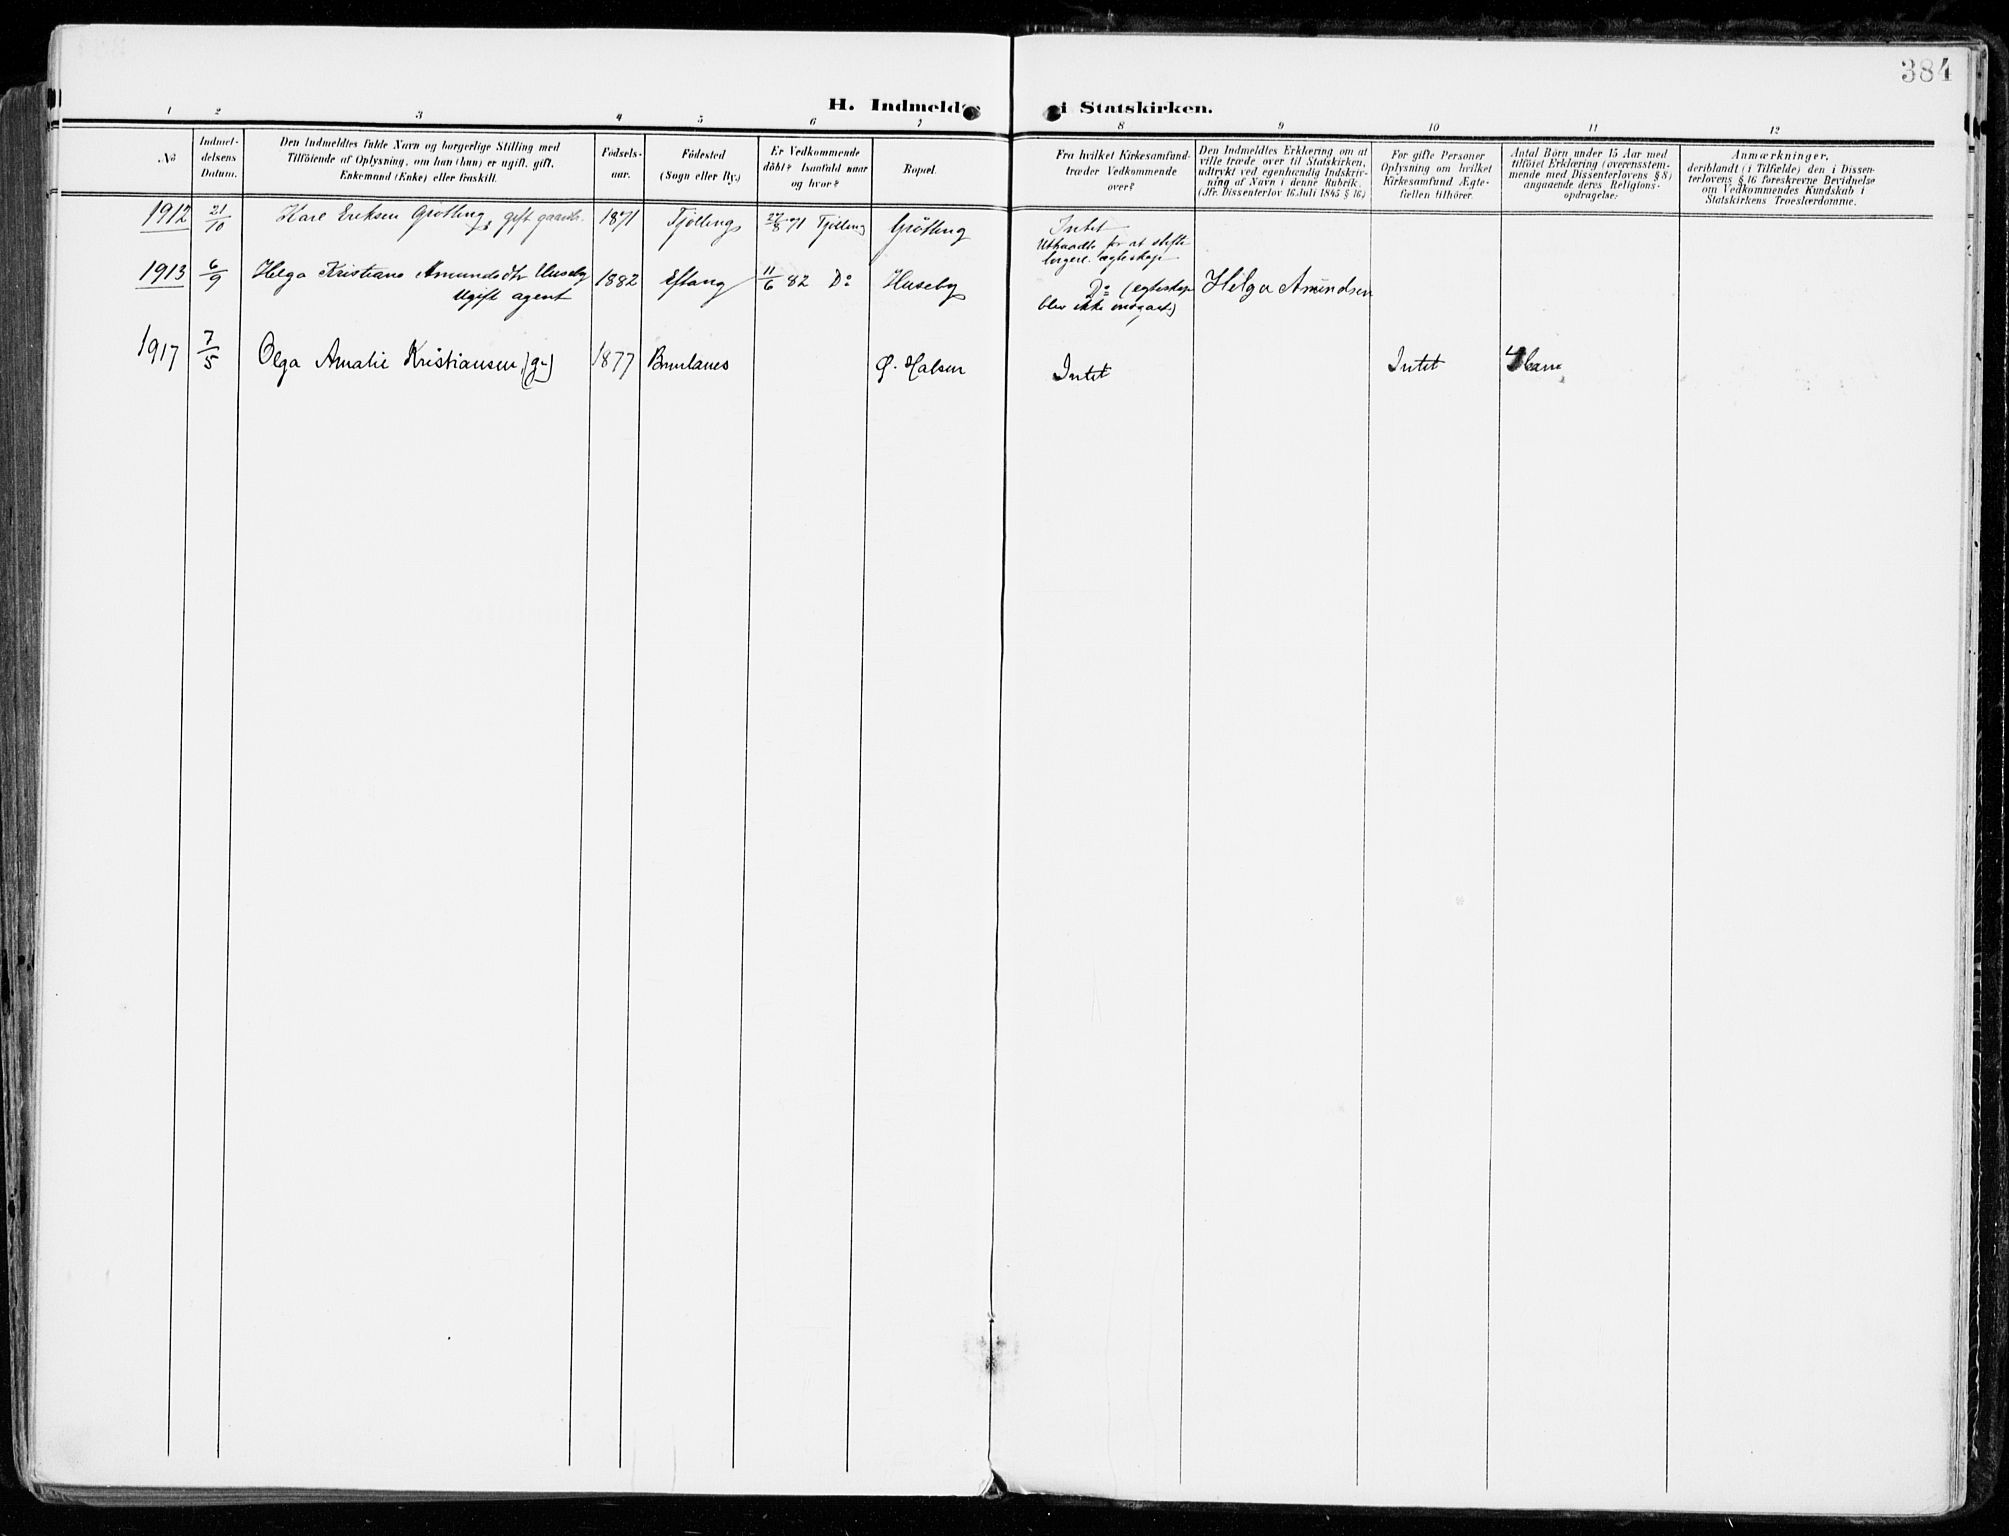 384
H. Indmeldte i Statskirken.
1 2 3 4 5 6 7 8 9 10 11 12
No
Indmel-
delsens
Datum.
Den Indmeldtes fulde Navn og borgerlige Stilling med
Tilföiende af Oplysning, om han (hun) er ugift, gift,
Enkemand (Enke) eller fraskilt.
Födsels-
aar.
Födested
(Sogn eller By.)
Er Vedkommende
döbt? Isaafald naar
og hvor?
Bopæl.
Fra hvilket Kirkesamfund
træder Vedkommende
over?
Den Indmeldtes Erklæring om at
ville træde over til Statskirken,
udtrykt ved egenhændig Indskriv-
ning af Navn i denne Rubrik.
(Jfr. Dissenterlov 16 Juli 1845 § 16)
For gifte Personer
Oplysning om hvilket
Kirkesamfund Ægte-
fællen tilhörer.
Antal Börn under 15 Aar med
tilföiet Erklæring (overensstem-
mende med Dissenterlovens § 8)
angaaende deres Religions-
opdragelse:
Anmærkninger,
deriblandt (i Tilfælde) den i Dissen-
terlovens § 16 foreskrevne Bevidnelse
om Vedkommendes Kundskab i
Statskirkens Troeslærdomme.
1912 21/10 Karl Eriksen Grøtting, gift gaardbr. 1871 Tjølling 27/8 71 Tjølling Grøtting Intet
Uttraadte for at stifte
borgerl. ægteskap
1913 6/9 Helga Kristiane Amundsdtr Huseby 1882 Eftang 11/6 82 Do Huseby Do (egteskap Helga Amundsen
Ugift agent blev ikke indgaat)
1917 7/5 Olga Amalie Kristiansen, (g.) 1877 Brunlanes Ø. Halsen Intet Intet 4 barn